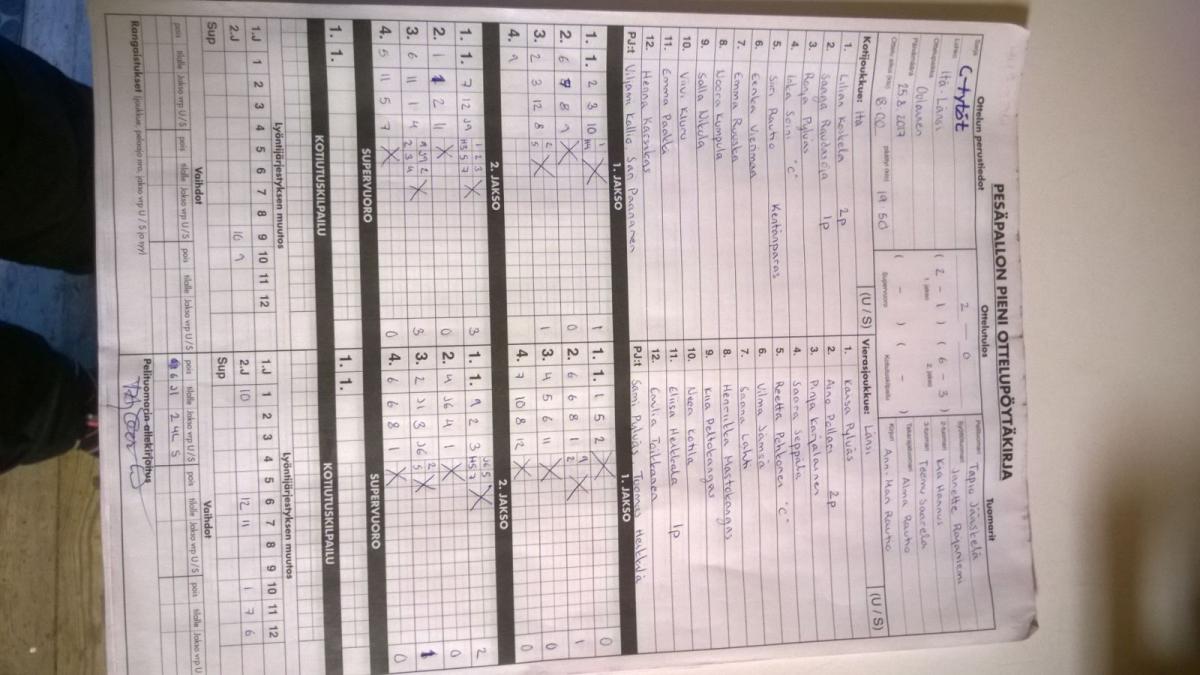 PESÄPALLON PIENI OTTELUPÖYTÄKIRJA
Ottelun perustiedot
Ottelutulos
Tuomarit
Sarja C-tytöt
2 - 0
Pelituomari Tapio Jääskelä
Lohko Itä-Länsi
Syöttötuomari Janette Rajaniemi
Ottelupaikka Oulainen
( 2 - 1 ) ( 6 - 3 )
1. jakso 2. jakso
2-tuomari Kia Hannus
Päivämäärä 25.8.2017
3-tuomari Teemu Saarela
Ottelu alkoi (klo) 18.00 päättyi (klo) 19.50
( - ) ( - )
Supervuoro Kotiutuskilpailu
Takarajatuomari Alma Rautio
Kirjuri Anni-Mari Rautio
Kotijoukkue: Itä (U / S)
1. Lilian Koskela 2p
2. Sanna 1p
3. Ronja Pylväs
4. Iida Soini "C"
5. Siiri Rautio Kentänparas
6. Eerika Vierimaa
7. Emma Rauska
8. Noora Kumpula
9. Salla Nikula
10. Viivi Kiuru
11. Emma Paakki
12. Henna Karsikas
PJ:t Viljami Kallio, Sari Paananen
Vierasjoukkue: Länsi (U / S)
1. Kaisa Pylväs
2. Aino Pollari 2p
3. Pinja Karjalainen
4. Saara Seppälä
5. Reetta Pahkonen "C"
6. Vilma Jämsä
7. Saana Lahti
8. Henriikka Mastokangas
9. Kiia Peltokangas
10. Neea Kotila
11. Eliisa Heikkala 1p
12. Emilia Toikkanen
PJ:t Sami Pylväs Tuomas Heikkilä
1. JAKSO
1. JAKSO
1. 1. 2 3 10
1
1. 1. 1 5 2 X
0
2. 6 7 8 9 X
0
2. 6 6 8 1
1
3. 2 3 12 8
1
3. 4 5 6 11 X
0
4. 9
4. 7 10 8 12 X
0
2. JAKSO
2. JAKSO
1. 1. 7 12
3
1. 1. 9 2 3
2
2. 1 2 11 X
0
2. 4 J6 4 1 X
0
3. 6 11 1 4
3
3. 2 J1 3 J6
1
4. 5 11 5 7 X
0
4. 6 6 8 1 X
0
SUPERVUORO
SUPERVUORO
1. 1.
1. 1.
KOTIUTUSKILPAILU
KOTIUTUSKILPAILU
Lyöntijärjestyksen muutos
1.J 1 2 3 4 5 6 7 8 9 10 11 12
2.J 10 9
Sup
Lyöntijärjestyksen muutos
1.J 1 2 3 4 5 6 7 8 9 10 11 12
2.J 10 12 11 1 7 6
Sup
Vaihdot
pois tilalle Jakso vrp U / S pois tilalle Jakso vrp U / S pois tilalle Jakso vrp U / S
Vaihdot
pois tilalle Jakso vrp U / S pois tilalle Jakso vrp U / S pois tilalle Jakso vrp U
6 J1 2 4L S
Rangaistukset (joukkue, pelaaja nro, jakso vrp U / S ja syy)
Pelituomarin allekirjoitus